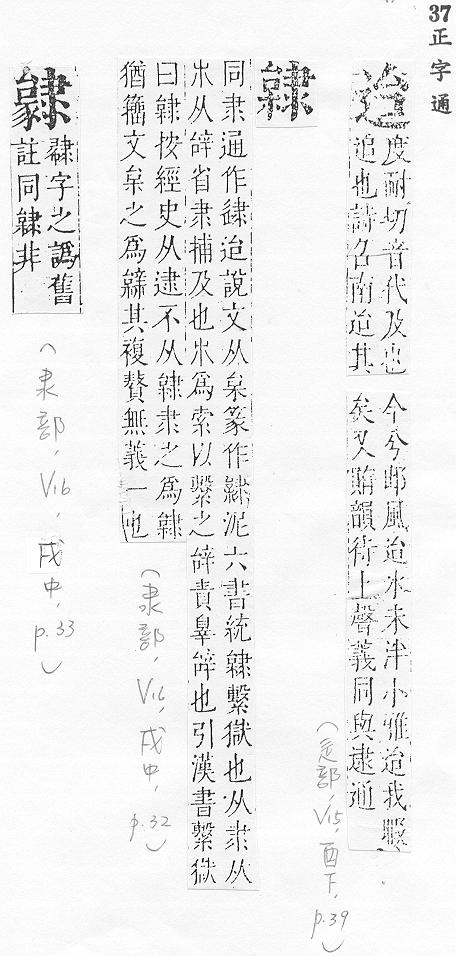 37正字通
迨
度耐切音代及也
追也詩召南迨其
今兮邶風迨冰未泮小雅迨我暇
矣又賄韻待上聲義同與逮通
(辵部, V15, 酉下, p.39)
隸
同隶通作隸迨說文从柰篆作隸泥六書統隸繫獄也从隶从
木从辥省隶捕及也木爲索以繫之辥責辠辥也引漢書繫獄
曰隸按經史从逮不从隸隶之爲隸
猶籒文柰之爲𥜉其複贅無義一也
(隶部, V16, 戌中, p.32)
字之譌舊
註同隸非
(隶部, V16, 戌中, p.33)